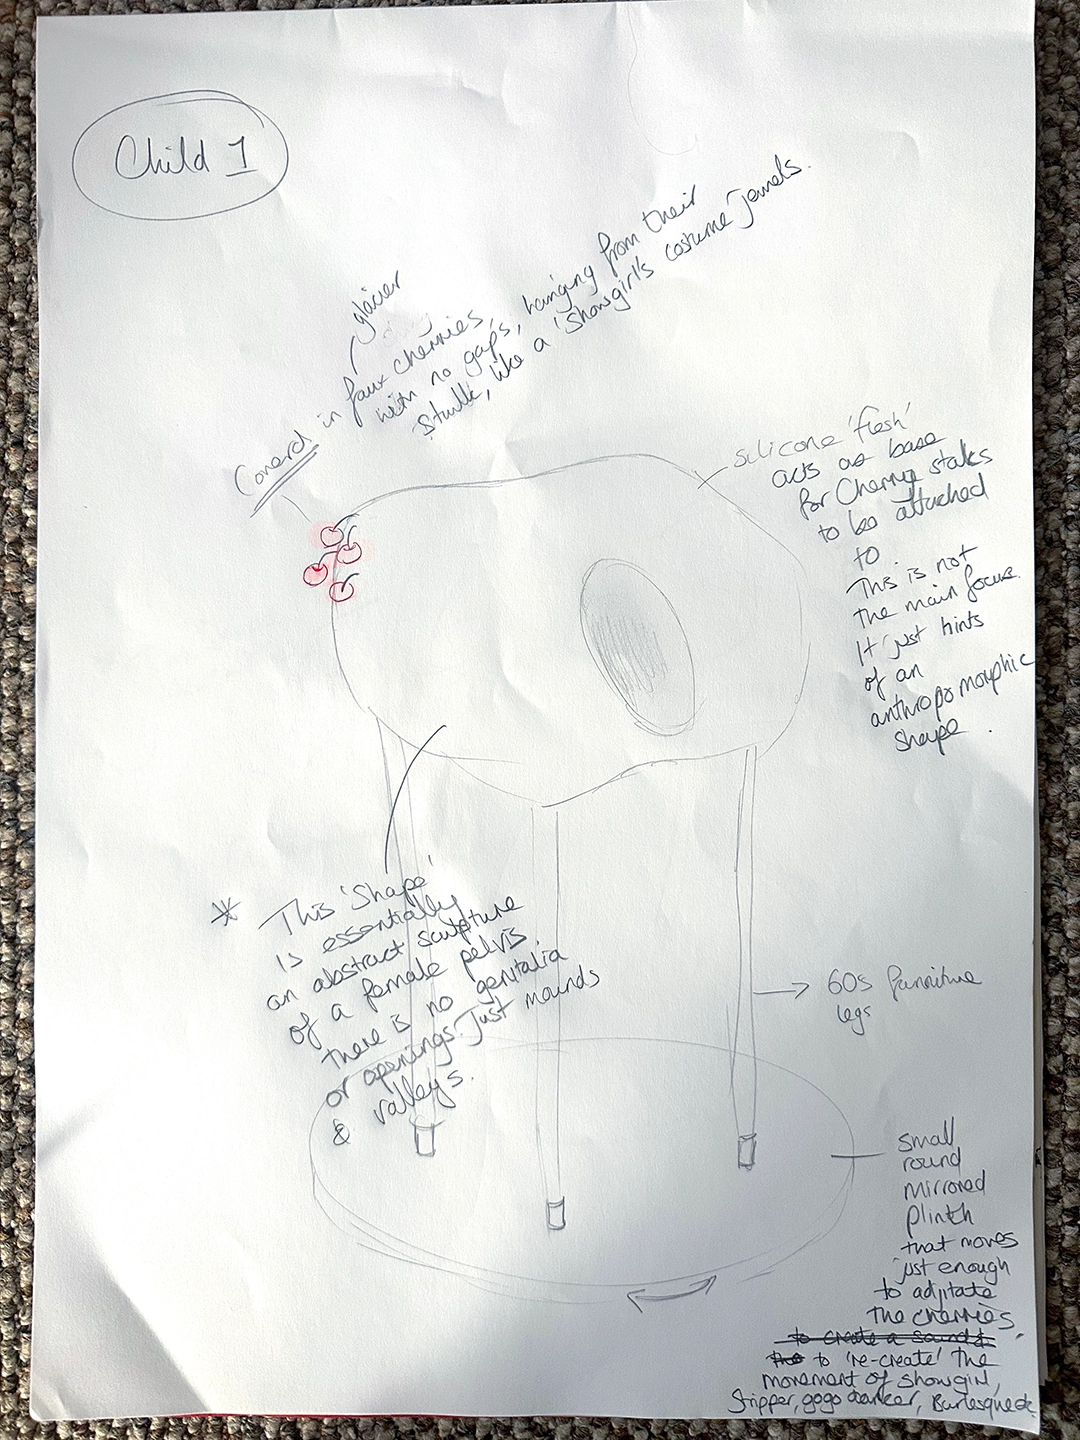 Child 1
glacier
Coverd in faux cherries,
with no gaps, hanging from their
stalk, like a 'showgirl's costume jewels.
silicone 'flesh'
acts as base
for Cherry stalks
to be attached
to
This is not
the main focus.
It just hints
of an
anthropomorphic
shape.
* This 'Shape'
is essentially
an abstract sculpture
of a female pelvis
there is no genitalia
or openings. Just mounds
& valleys.
60s furniture
legs
small
round
mirrored
plinth
that moves
just enough
to adjitate
the cherries,
to create a sound &
to 're-create' the
movement of showgirl,
Stripper, gogo dancer,